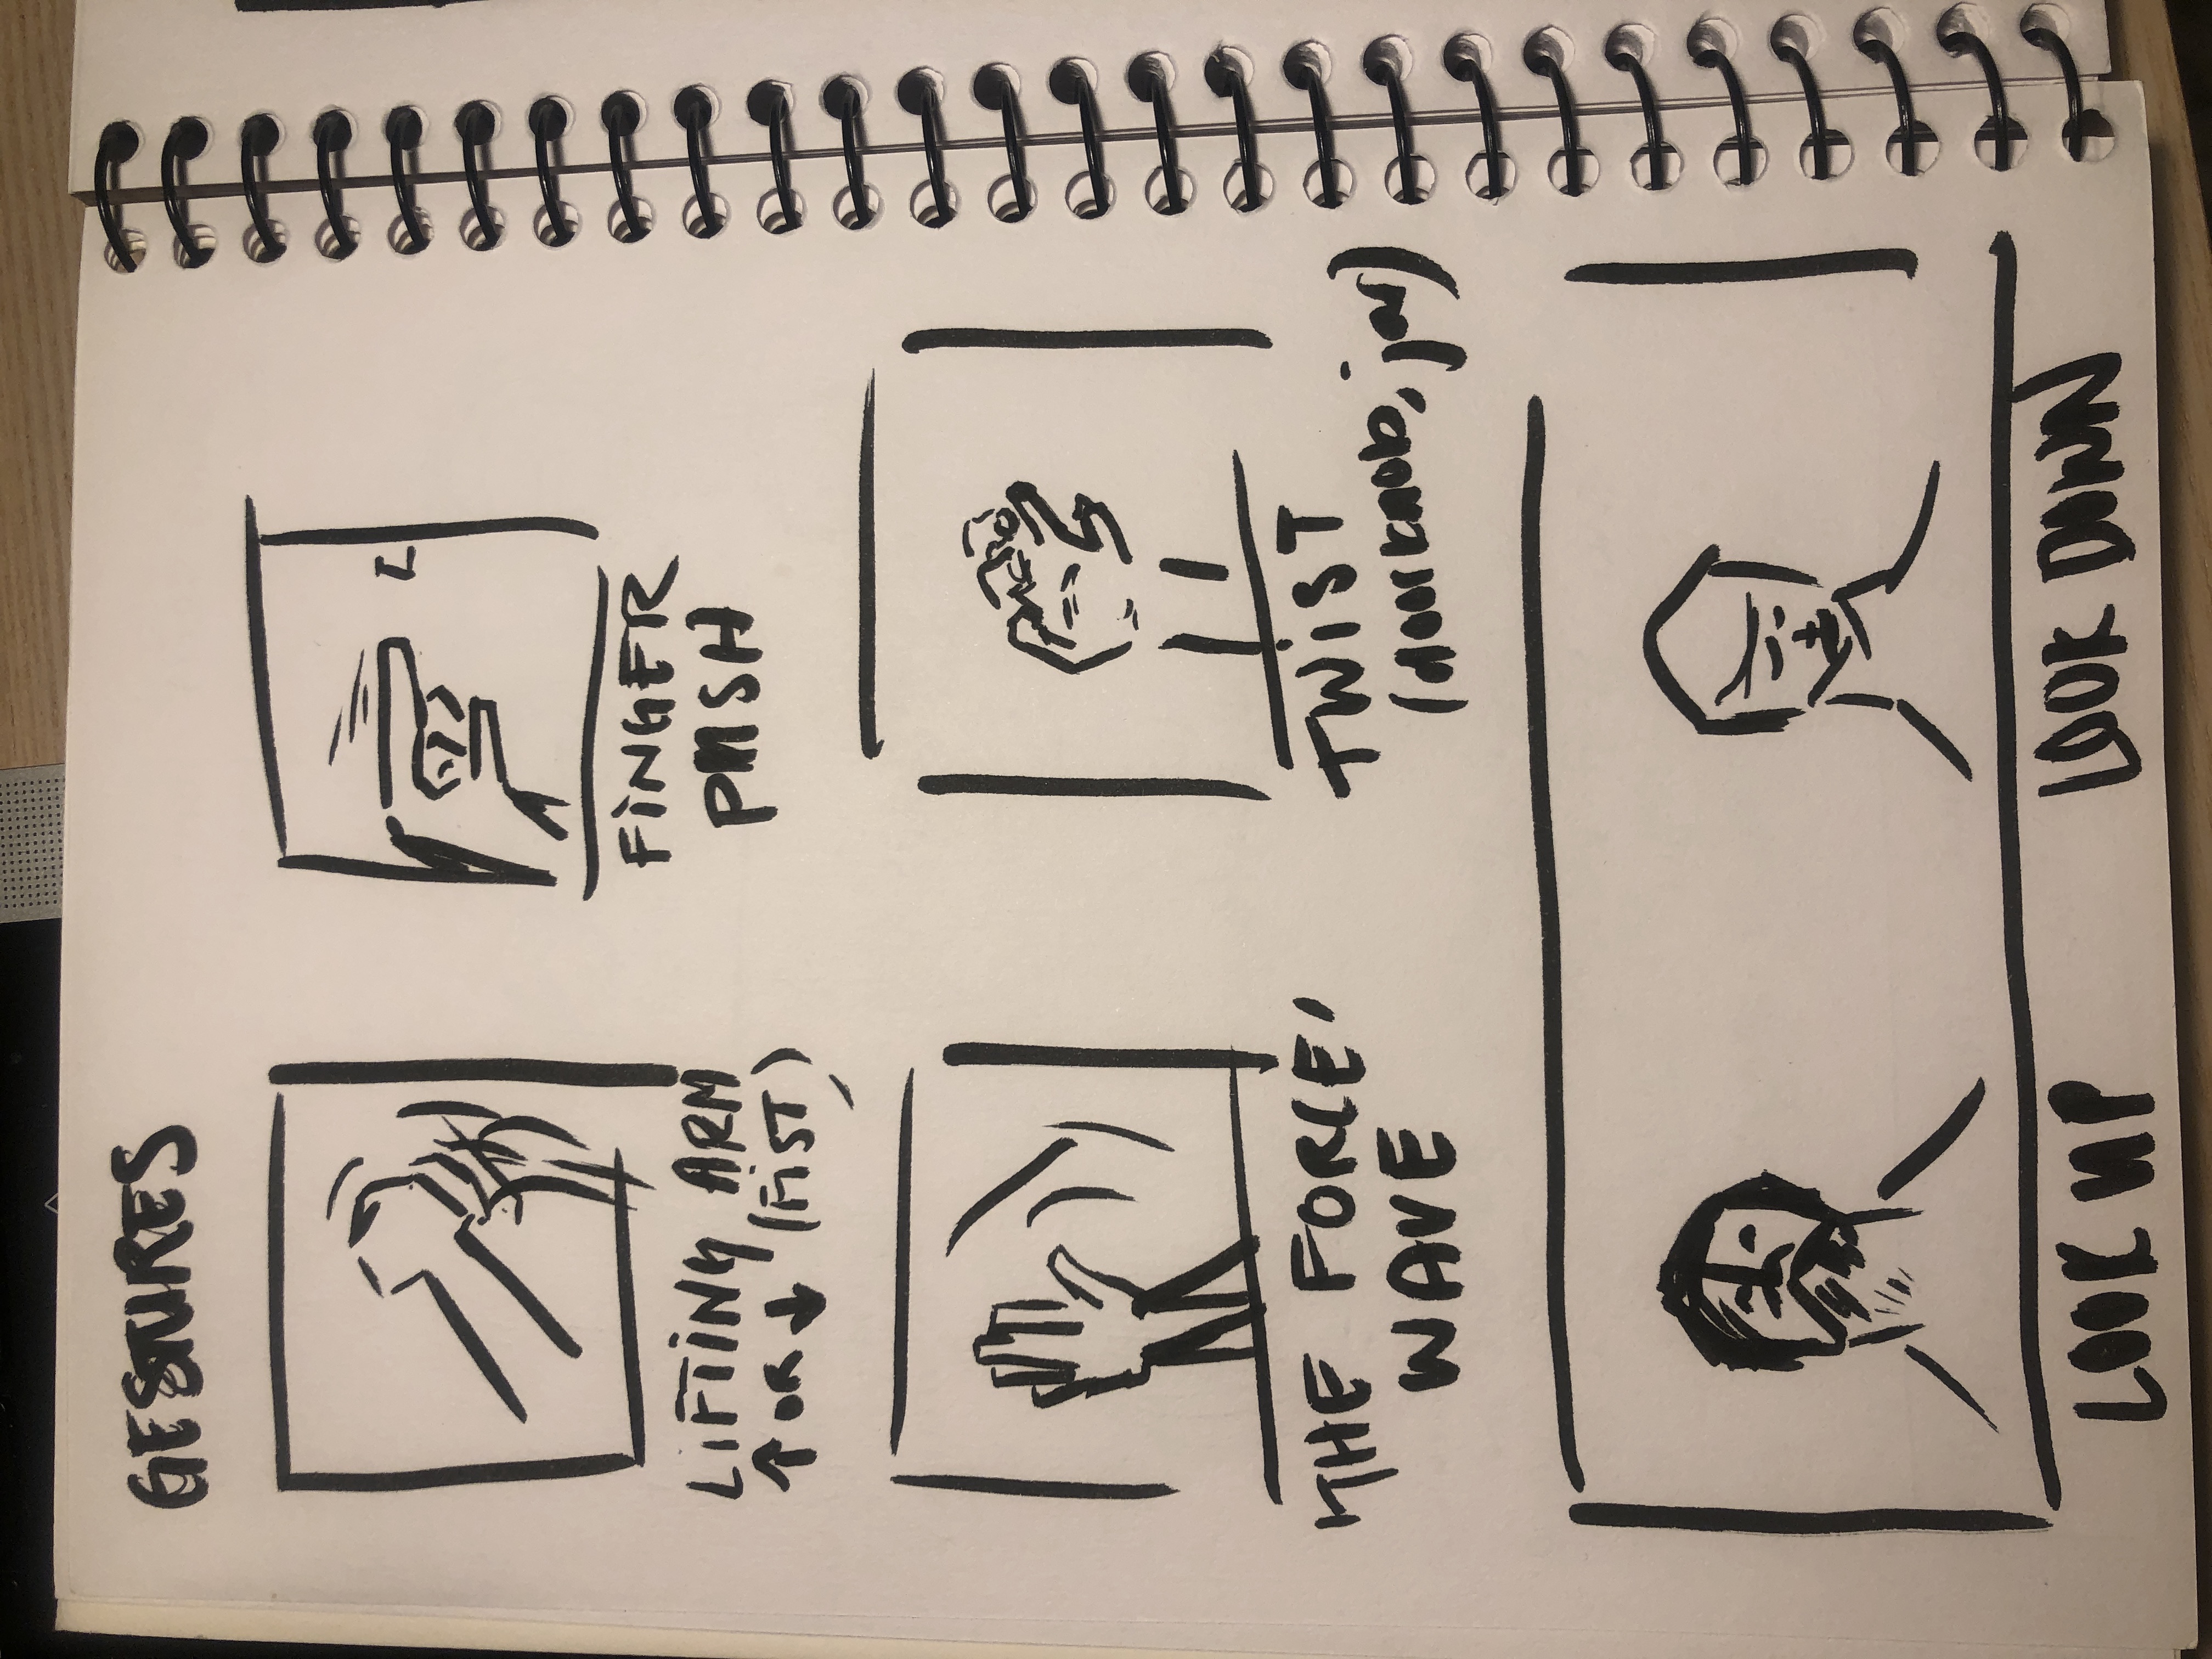 GESTURES
LIFTING ARM
↑ OR ↓ (FIST)
FINGER
PUSH
'THE FORCE'
WAVE
TWIST
(doorknob, jar)
LOOK UP
LOOK DOWN